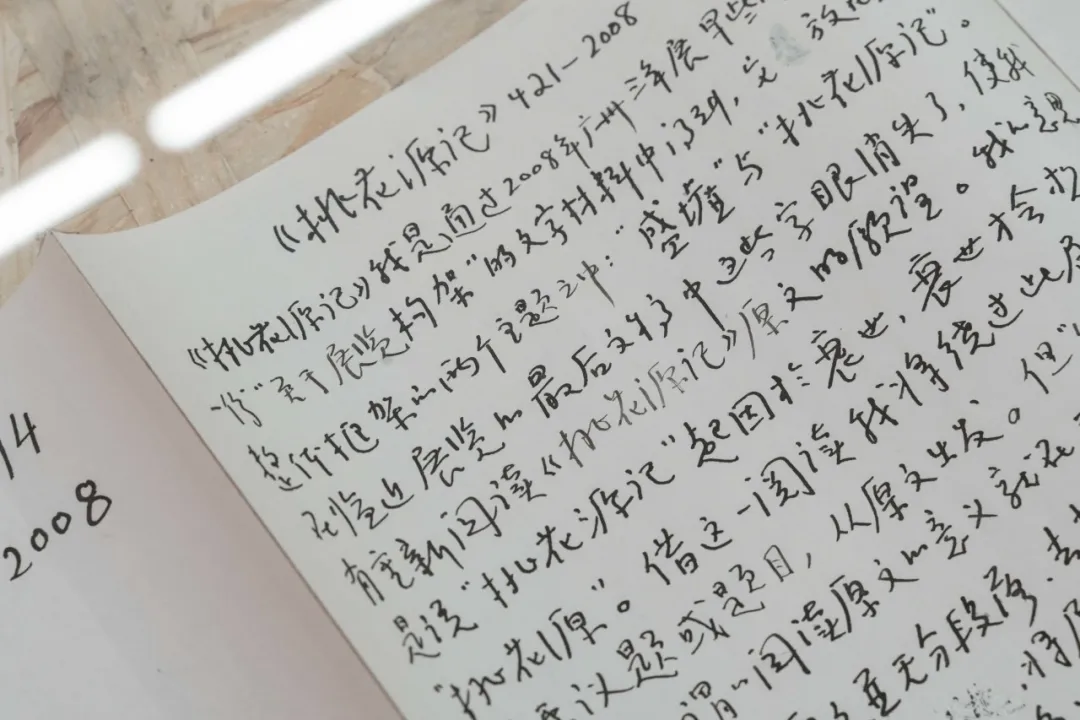 《桃花源记》421-2008
《桃花源记》我是通过2008年广州三年展早些
份"关于展览构架"的文字材料中得到,文 放
整个框架的两个主题之中:"盛墟"与"桃花源记"。
到临近展览的最后文稿中这些字眼消失了,使我
有重新阅读《桃花源记》原文的愿望。我的意思
是说"桃花源记"起因于衰世,衰世才会
"桃花源"。借这一阅读我将绕过此
议题或题目,从原文出发。但"
谓"阅读原文的意义就在
至无分段落,
将
/4
2008